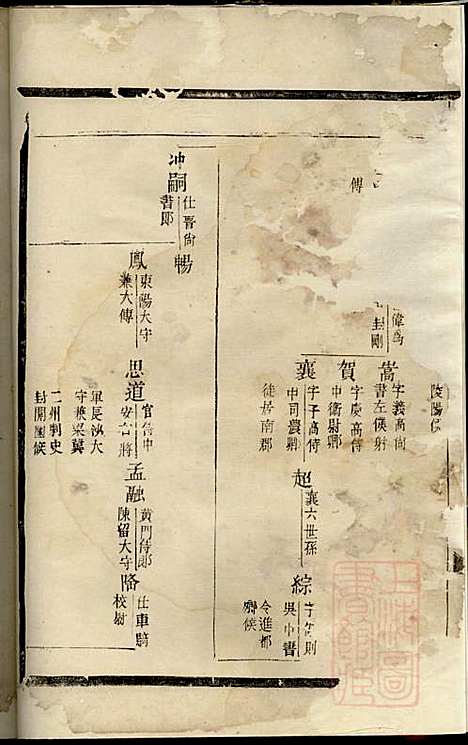 陵陽侯
傅
偉為
封剛
嵩
字義高尚
書左僕射
賀
字慶高侍
中衛尉卿
襄
字子高侍
中司農卿
徙居南郡
超
襄六世孫
綜
吳中書
令進都
鄉侯
冲嗣
仕晉尚
書郎
暢
鳳
東陽太守
兼太傅
思道
官侍中
安吉將
軍長沙太
守兼梁冀
二州刺史
封開國侯
孟融
黃門侍郎
陳留太守
隆
仕車騎
校尉